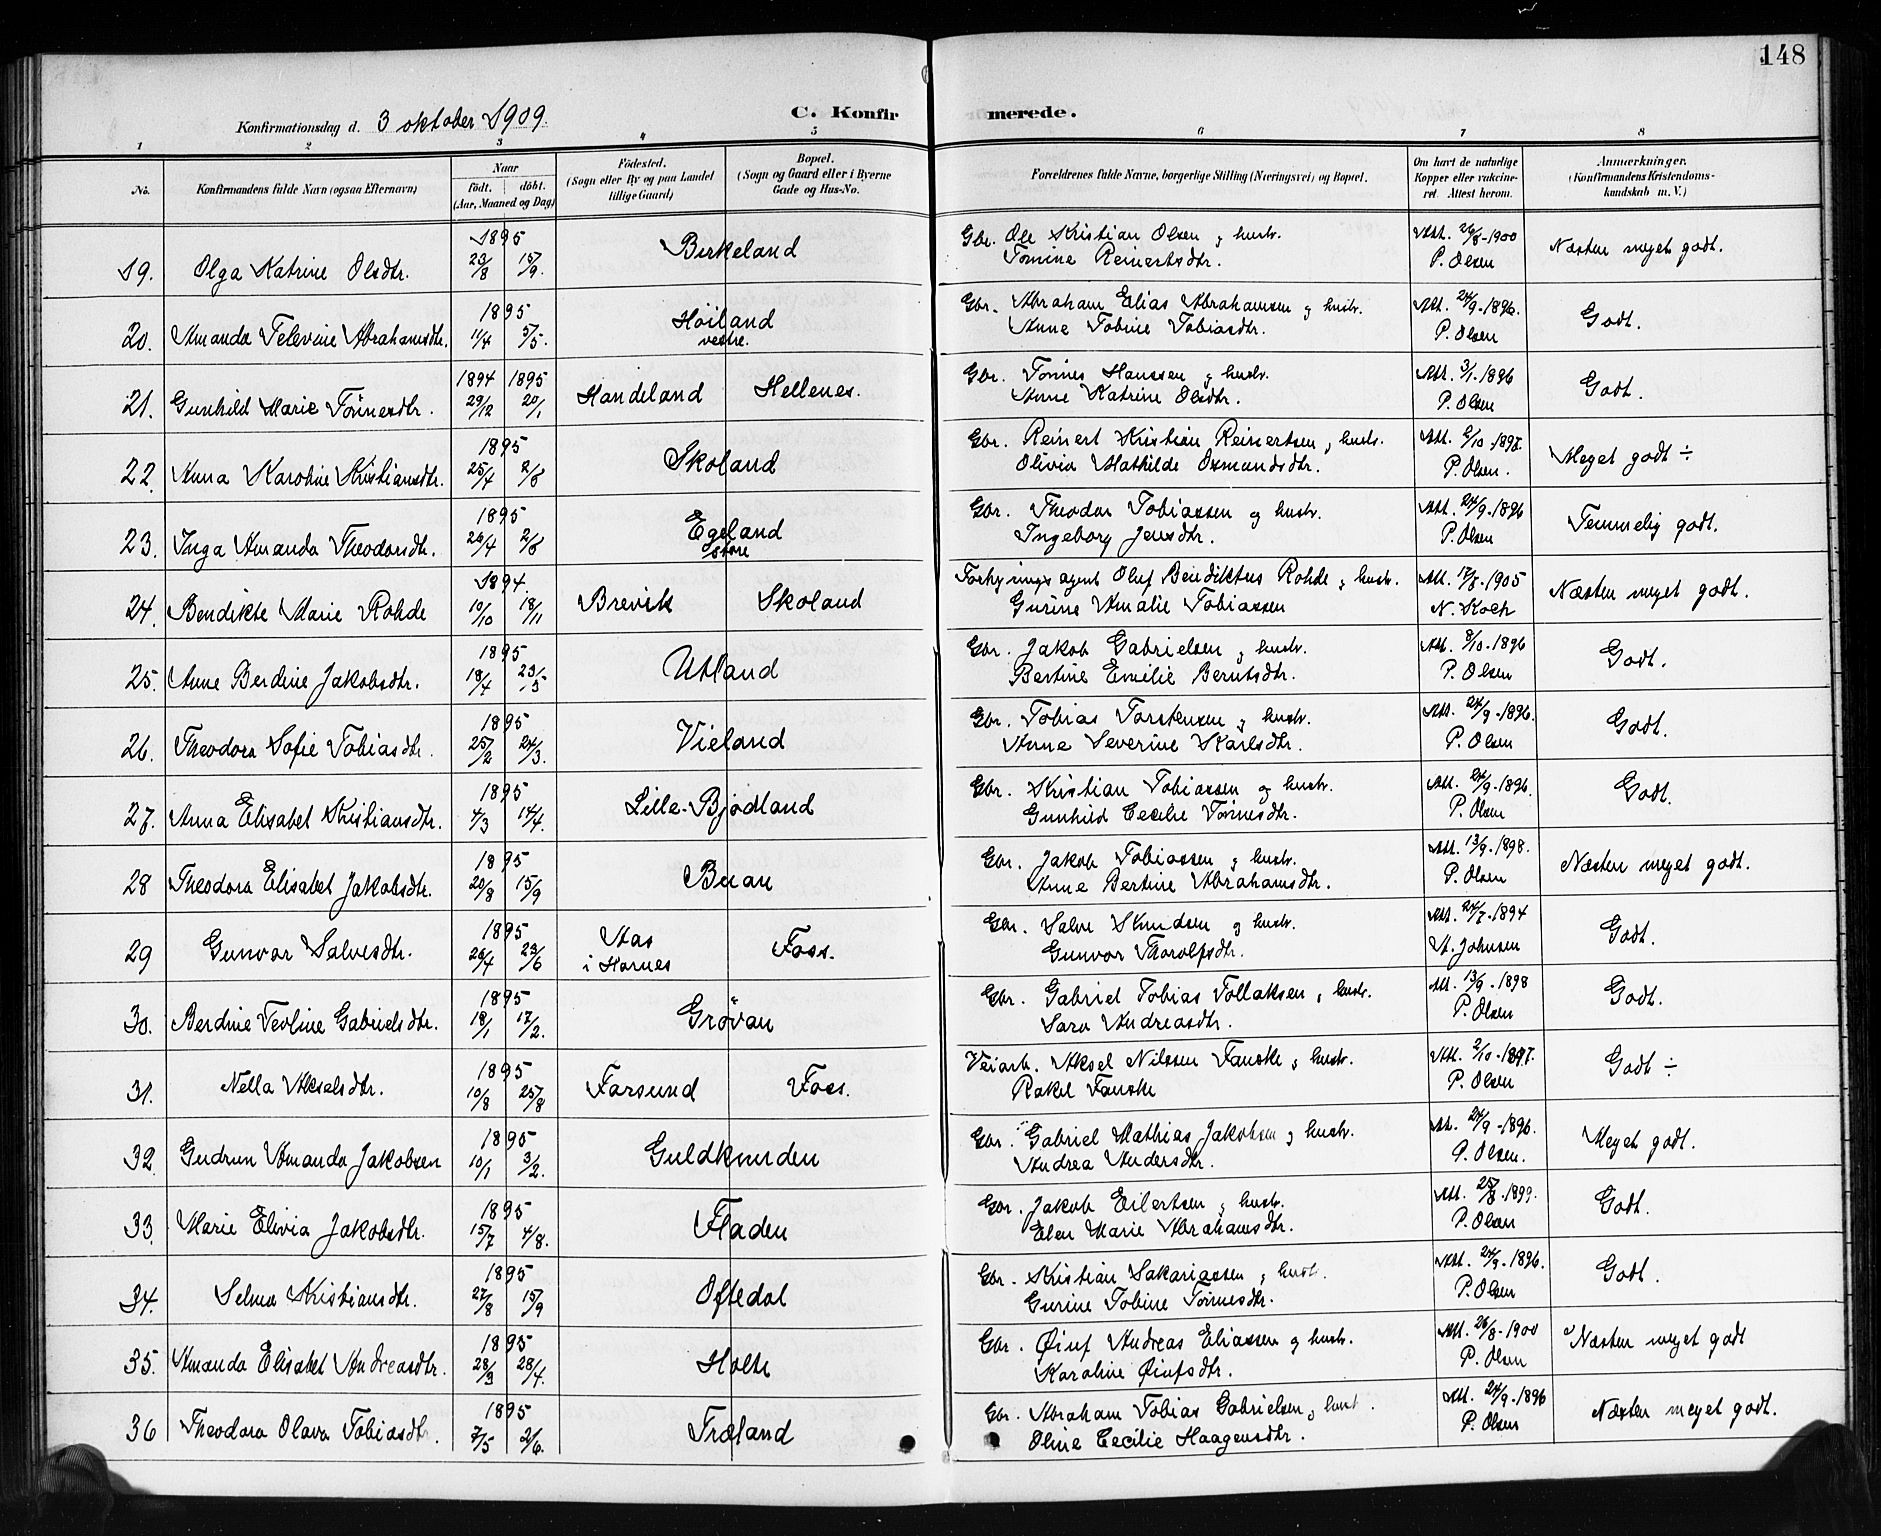 148
Konfirmationsdag d. 3 oktober 1909.
C. Konfirmerede.
1 2 3 4 5 6 7 8
No. Konfirmandens fulde Navn (ogsaa Efternavn) Naar født. døbt. (Aar, Maaned og Dag) Fødested. (Sogn eller By og paa Landet tillige Gaard) Bopæl. (Sogn og Gaard eller i Byerne Gade og Hus-No. Forældrenes fulde Navne, borgerlige Stilling (Næringsvei) og Bopæl. Om havt de naturlige Kopper eller vaccineret. Attest herom. Anmærkninger. (Konfirmandens Kristendomskundskab m. V.)
19. Olga Katrine Olsdtr. 1895 23/8 15/9. Birkeland Gbr. Ole Kristian Olsen, hustr. Tomine Reinertsdtr. Att. 26/8-1900 P. Olsen Næsten meget godt.
20. Amanda Televine Abrahamsdtr. 1895 11/4 5/5. Høiland vestre. Gbr. Abraham Elias Abrahamsen og hustr. Anne Tobine Tobiasdtr. Att. 24/9-1896. P. Olsen Godt.
21. Gunhild Marie Tønnesdtr. 1894 29/12 1895 20/1 Handeland Hellenes. Gbr. Tønnes Hanssen, hustr. Anne Katrine Olsdtr. Att. 3/1-1896 P. Olsen Godt.
22. Anna Karoline Kristiansdtr. 1895 25/4 2/6 Skoland Gbr. Reinert Kristian Reinertsen, hustr. Olivia Mathilde Osmundsdtr. Att. /10-1897. P. Olsen. Meget godt ÷
23. Inga Amanda Theodorsdtr. 1895 26/4 2/6 Egeland store Gbr. Theodor Tobiassen og hustr. Ingeborg Jensdtr. Att. 24/9-1896 P. Olsen Temmelig godt.
24. Bendikte Marie Rohde 1894. 10/10 18/11 Brevik Skoland Forhyringsagent Oluf Bendiktus Rohde, hustr. Gurine Amalie Tobiassen Att. 17/8-1905 N. Koch Næsten meget godt.
25. Anne Berdine Jakobsdtr. 1895 18/4 23/5 Utland Gbr. Jakob Gabrielsen, hustr. Bertine Emilie Berntsdtr. Att. 8/10-1896 P. Olsen Godt.
26. Theodora Sofie Tobiasdtr. 1895 25/2 24/3. Vieland Gbr. Tobias Torstensen, hustr. Anne Severine Karlsdtr. Att. 24/9-1896. P. Olsen Godt.
27. Anna Elisabet Kristiansdtr. 1895 4/3 14/4. Lille-Bjødland Gbr. Kristian Tobiassen og hustr. Gunhild Cecilie Tønnesdtr. Att. 24/9-1896. P. Olsen Godt.
28 Theodora Elisabet Jakobsdtr. 1895 20/8 15/9 Buan Gbr. Jakob Tobiassen, hustr. Anne Bertine Abrahamsdtr. Att. 13/9-1898. P. Olsen Næsten meget godt.
29 Gunvor Salvesdtr. 1895 26/4 23/6 Aas i Hornes Foss. Gbr. Salve Knudsen og hustr. Gunvor Thorolfsdtr. Att. 24/7-1894 A. Johnsen Godt.
30. Berdine Teoline Gabrielsdtr. 1895 18/1 17/2. Grøvan Gbr. Gabriel Tobias Tollaksen, hustr. Sara Andreasdtr. Att. 13/9-1898 P. Olsen Godt.
31. Nella Akselsdtr. 1895 10/8 25/8 Farsund Foss. Veiarb. Aksel Nilssen Fauske, hustr. Rakel Fauske Att. 2/10-1897. P. Olsen Godt ÷
32. Gudrun Amanda Jakobsen 1895 10/1 3/2. Guldknuden Gbr. Gabriel Mathias Jakobsen, hustr. Andrea Andersdtr. Att. 24/9-1896. P. Olsen. Meget godt.
33. Marie Elivia Jakobsdtr. 1895 15/7 4/8. Fladen Gbr. Jakob Eilertsen, hustr. Elen Marie Abrahamsdtr. Att. 25/8-1899. P. Olsen Godt.
34. Selma Kristiansdtr. 1895 27/8 15/9 Oftedal Gbr. Kristian Sakariassen, hustr. Gurine Tobine Tønnesdtr. Att. 24/9-1896. P. Olsen Godt.
35. Amanda Elisabet Andreasdtr. 1895 28/3 28/4. Holte Gbr. Øiuf Andreas Eliassen og hustr. Karoline Øiufsdtr. Att. 26/8-1900 P. Olsen Næsten meget godt
36 Theodora Olava Tobiasdtr. 1895 7/5 2/6. Træland Gbr. Abraham Tobias Gabrielsen, hust. Oline Cecilie Haagensdtr. Att. 24/9-1896 P. Olsen Næsten meget godt.